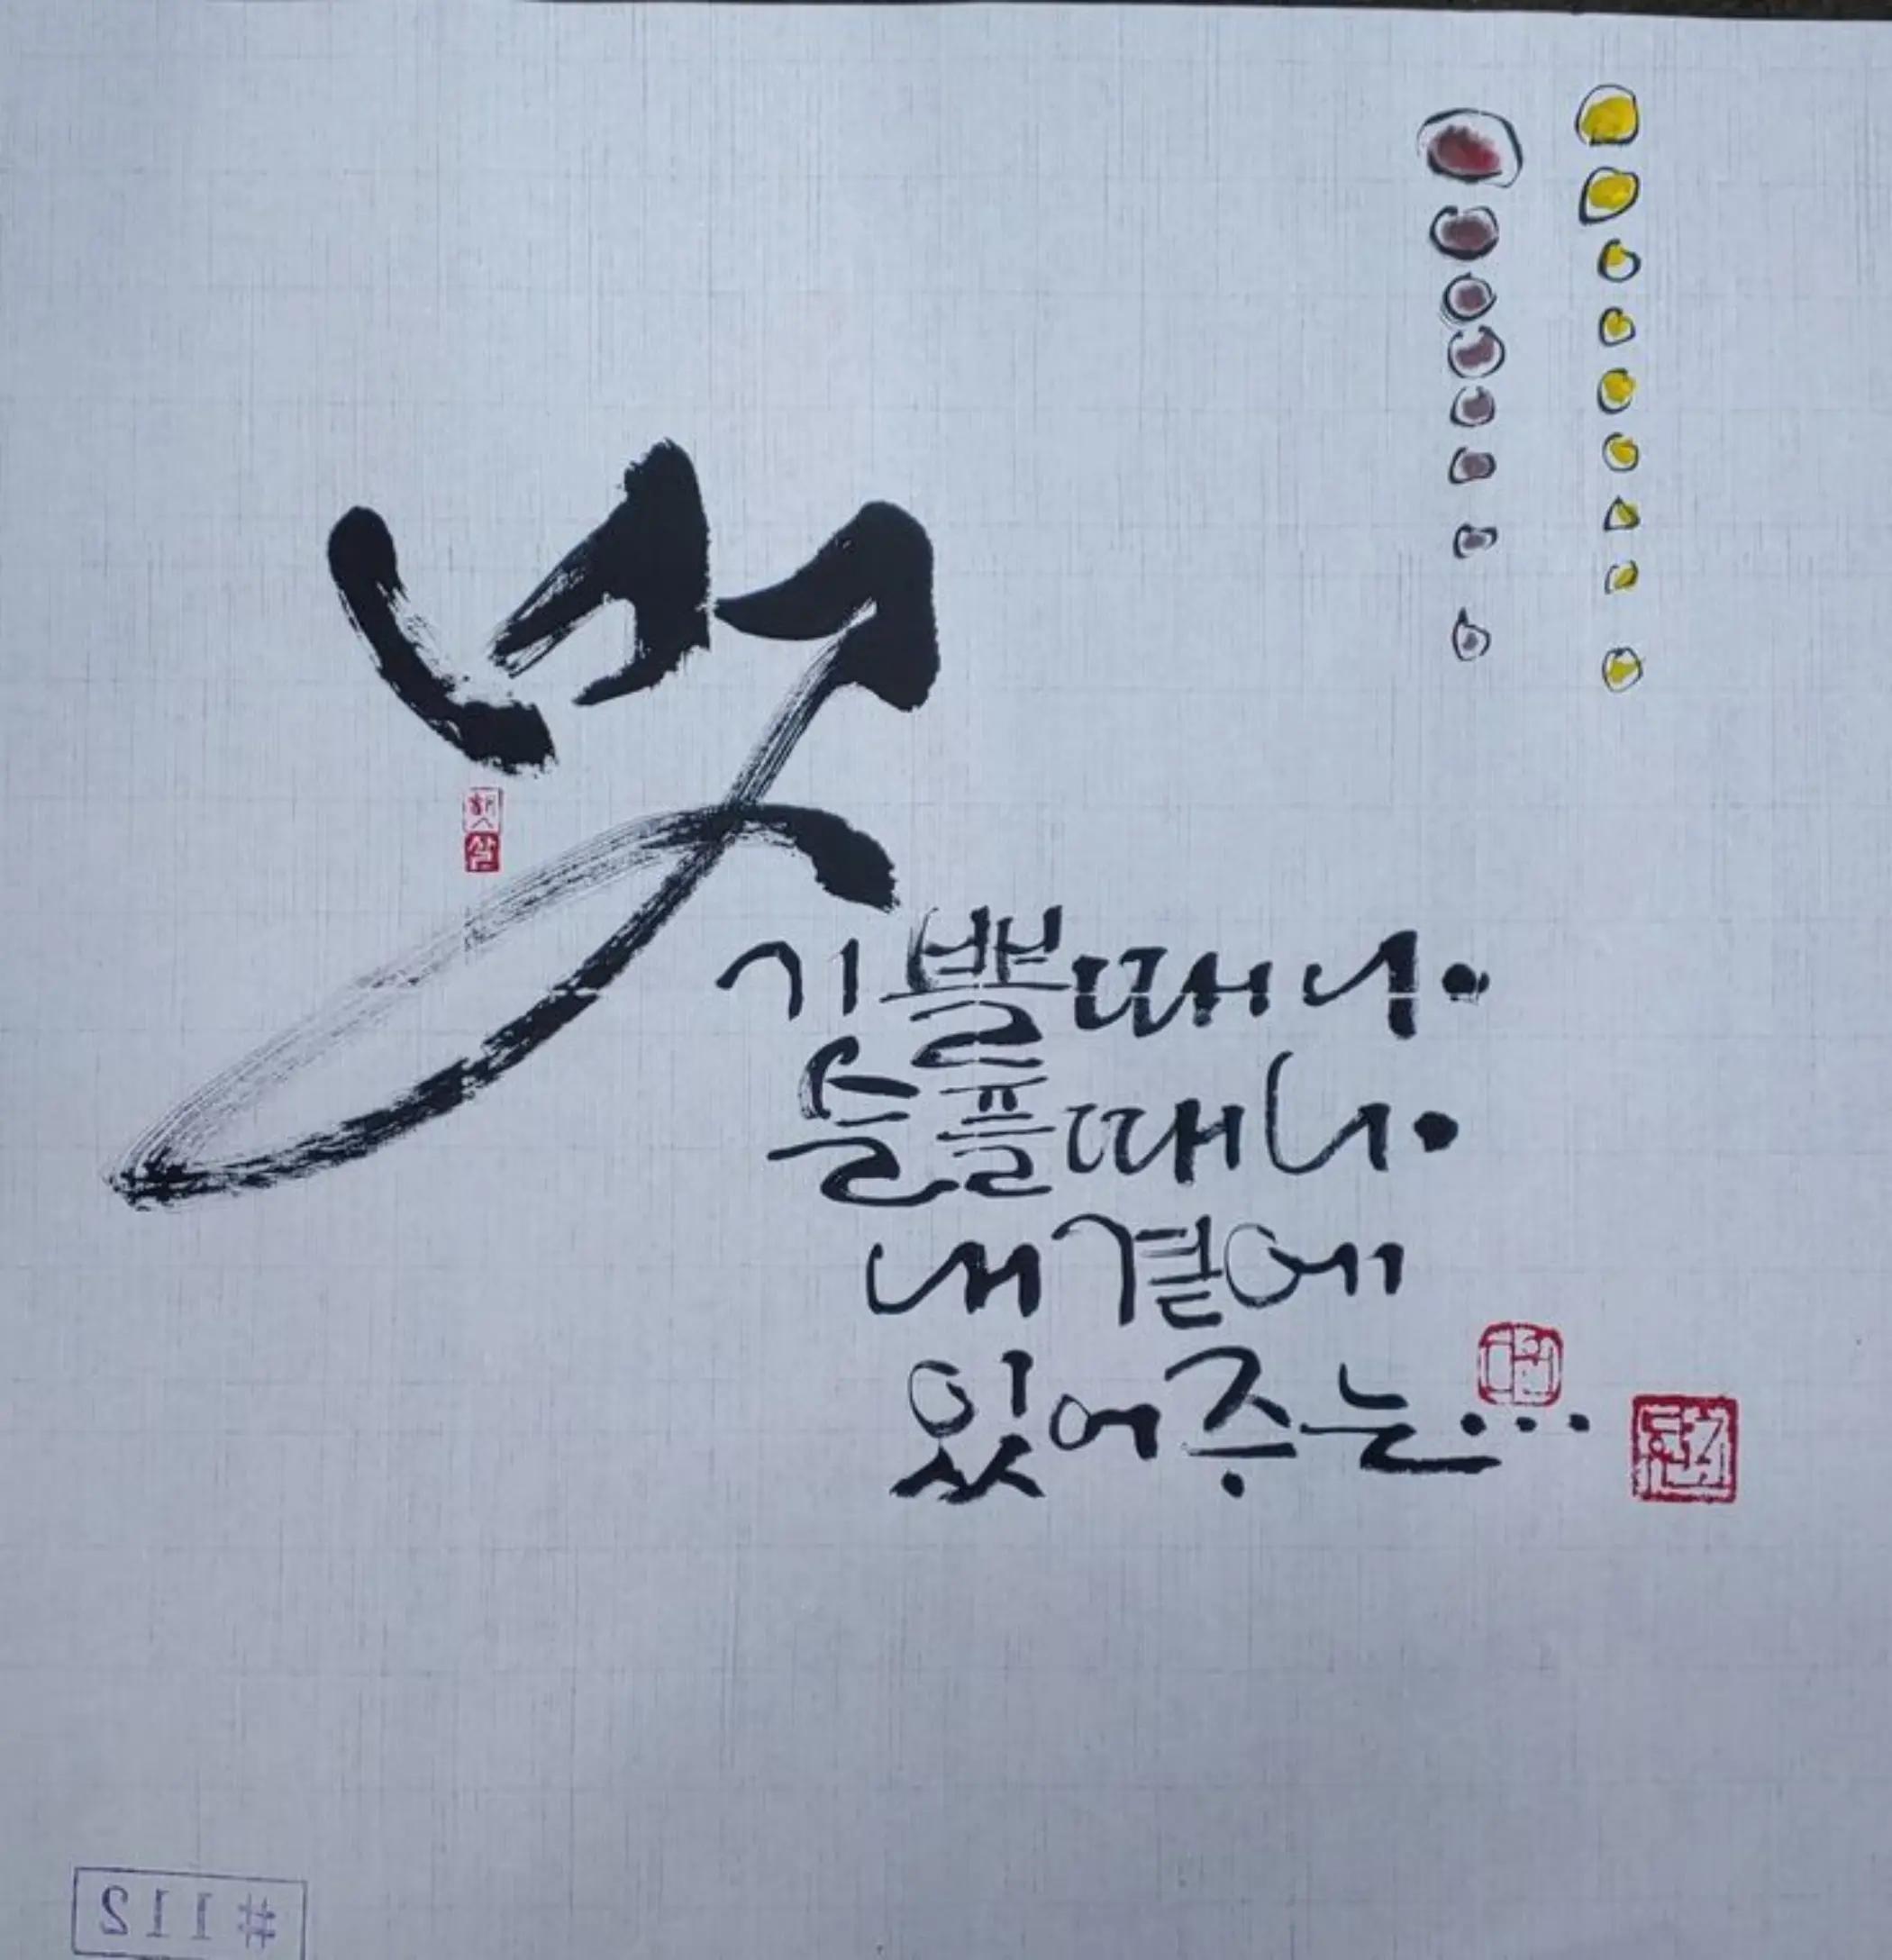 벗
햇살
기쁠때나.
슬플때나.
내곁에
있어주는...
#112